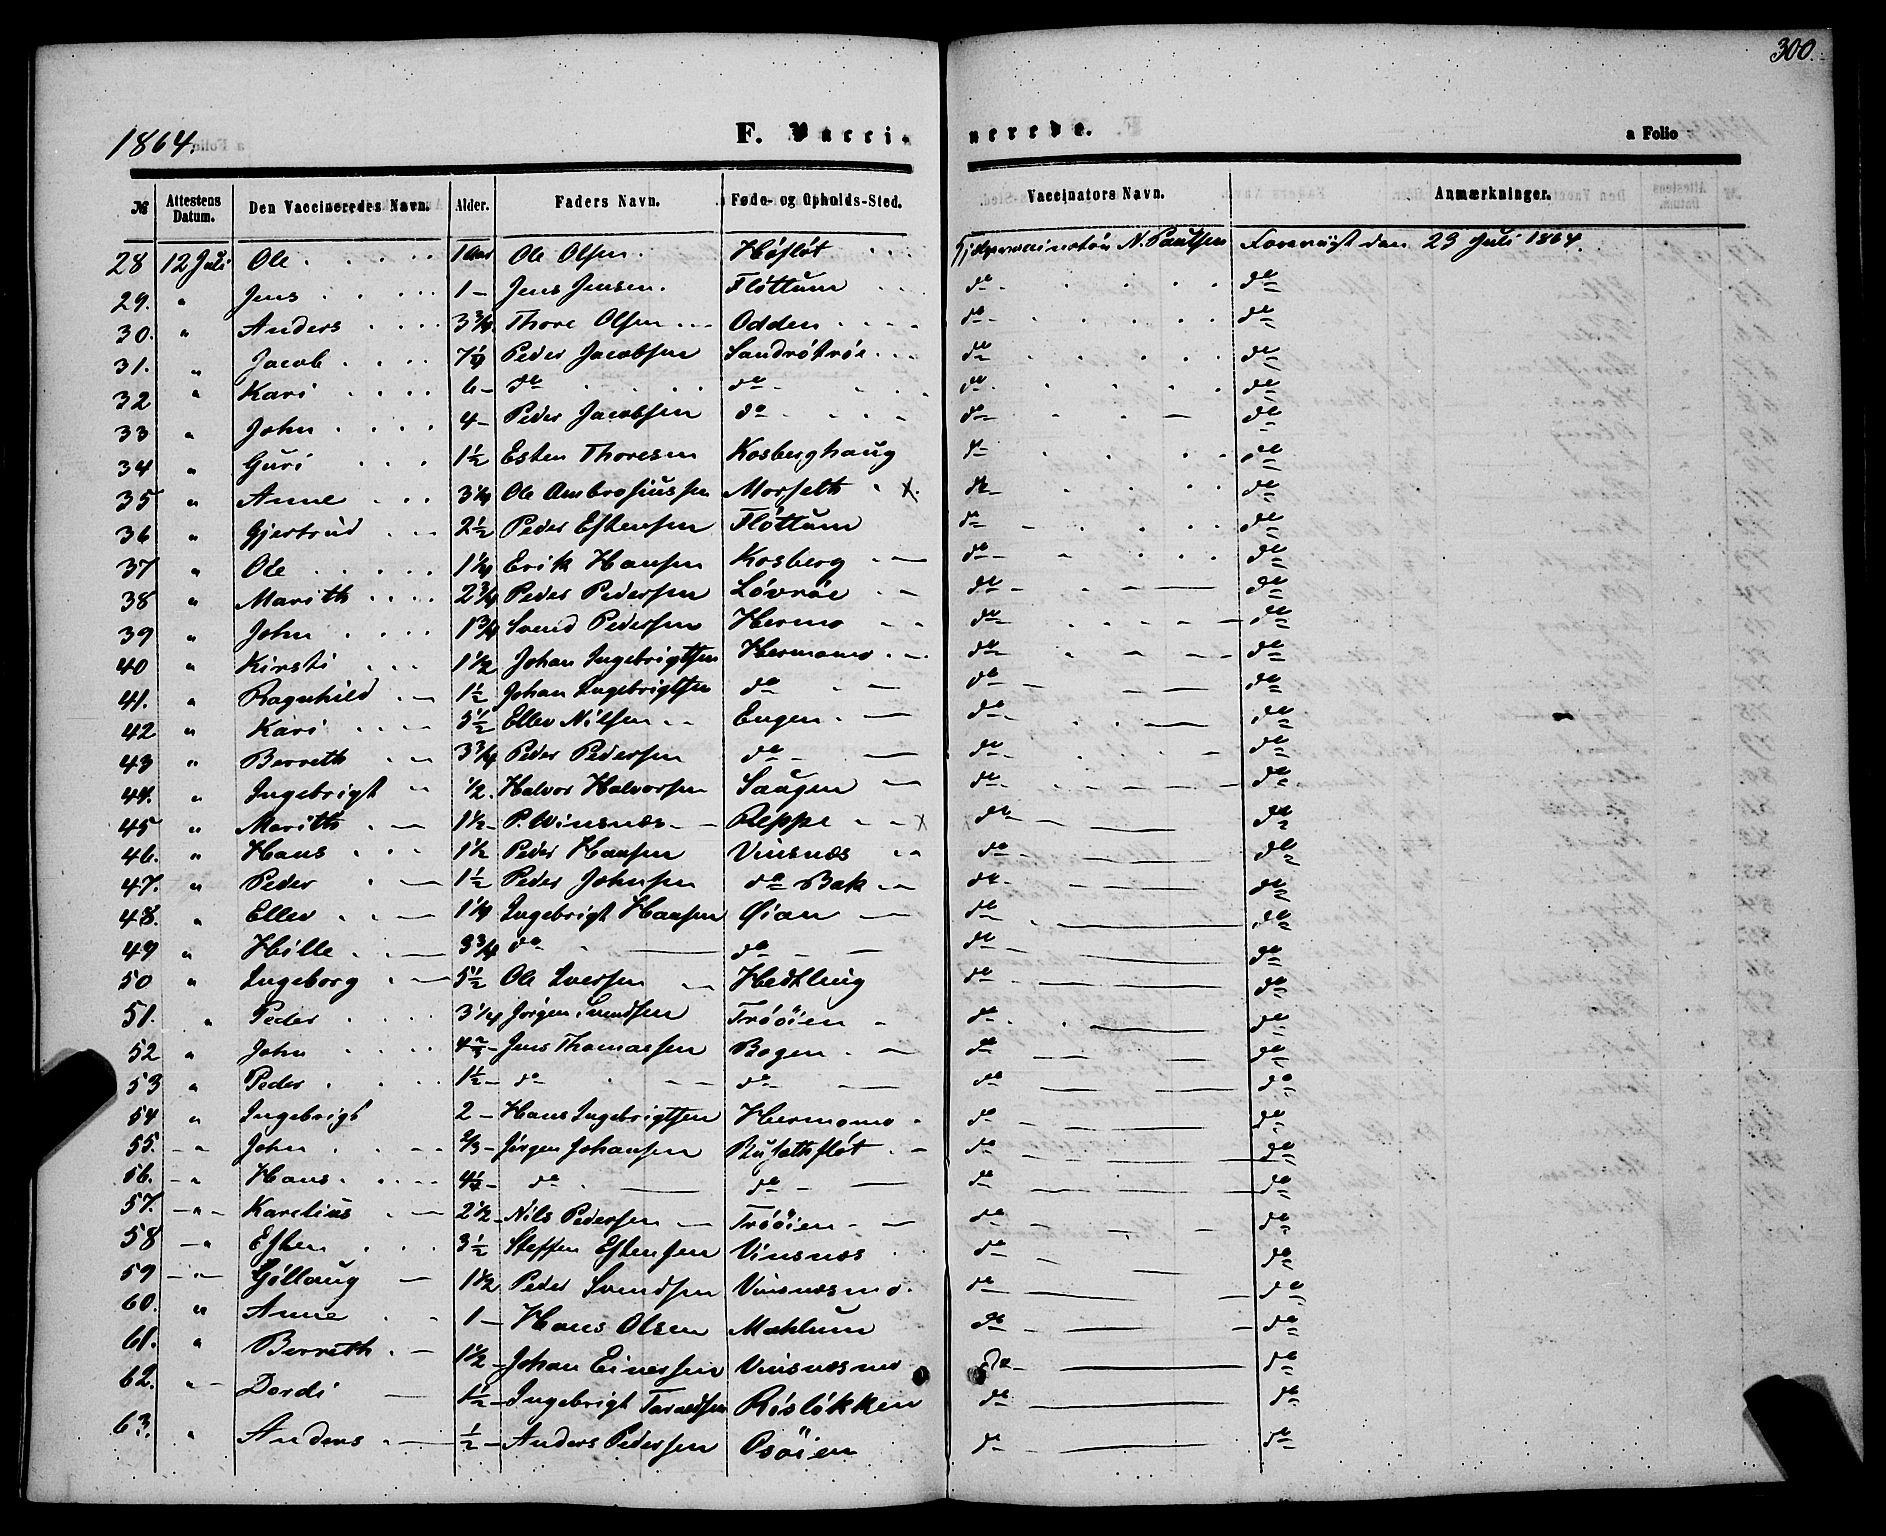 300.
1864.
F. Vacci-
nerede.
a Folio
№ Attestens Datum. Den Vaccineredes Navn. Alder. Faders Navn. Føde- og Opholds-Sted. Vaccinators Navn. Anmærkninger.
28 12 Juli Ole 1 Aar Ole Olsen Høsløt N. Paulsen den 23 Juli 1864.
29. " Jens 1 - Jens Jensen. Fløttum do do
30. " Anders 3 3/4 Thore Olsen Odden do do
31. " Jacob 7 1/4 Peder Jacobsen Sandrøtrøe do do
32 " Kari 6 - do do do do
33 " John 4 - Peder Jacobsen do do do
34 " Guri 1 1/2 Esten Thoresen Kosberghaug do do
35 " Anne 3 1/4 Ole Ambrosiussen Morseth x. do do
36 " Gjertrud 2 1/2 Peder Estensen Fløttum do do
37 " Ole 1 1/4 Erik Hansen Kosberg do do
38 " Marith 2 3/4 Peder Pedersen Løvrøe do do
39 " John 1 3/4 Svend Pedersen Hermo do do
40 " Kirsti 1 1/2 Johan Ingebrigtsen Hermomo do do
41. " Ragnhild 1 1/2 Johan Ingebrigtsen do do do
42 " Kari 5 1/2 Ellev Nilsen Engen do do
43 " Berreth 3 3/4 Peder Pedersen do do do
44. " Ingebrigt 1/2. Halvor Halvorsen Saugen do do
45 " Marith 1 1/2 - P. Winsnæs Reppe x do do
46. " Hans 1 1/2 Peder Hansen Vinsnæs do do
47. " Peder 1 1/2 Peder Johnsen do Bak do do
48. " Ellev 1 1/4 Ingebrigt Hansen Øian do do
49 " Hille 3 3/4 do do do do
50 " Ingeborg 5 1/2 Ole Iversen do do
51. " Peder 3 1/4 Jørgen Svendsen Trøøien do do
52 " John Jens Thomassen Bogen do do
53 " Peder 1 1/2 - do do do do
54 " Ingebrigt 2 - Hans Ingebrigtsen Hermomo do do
55. " John 2/3 - Jørgen Johansen do do
56. " Hans do do do do
57. " Karelius 2 1/2 - Nils Pedersen Trøøien do do
58 " Esten 3 1/2 Steffen Estensen Vinsnæs do do
59 " Gøllaug 1 1/2 Peder Svendsen Vinsnæsmo. do do
60. " Anne 1 - Hans Olsen Mæhlum do do
61. " Berreth 1 1/2 - Johan Einersen Vinsnæsmo do do
62. " Dordi 1 1/2 - Ingebrigt Røsløkken do do
63. " Anders 1/2 - Anders Pedersen do do